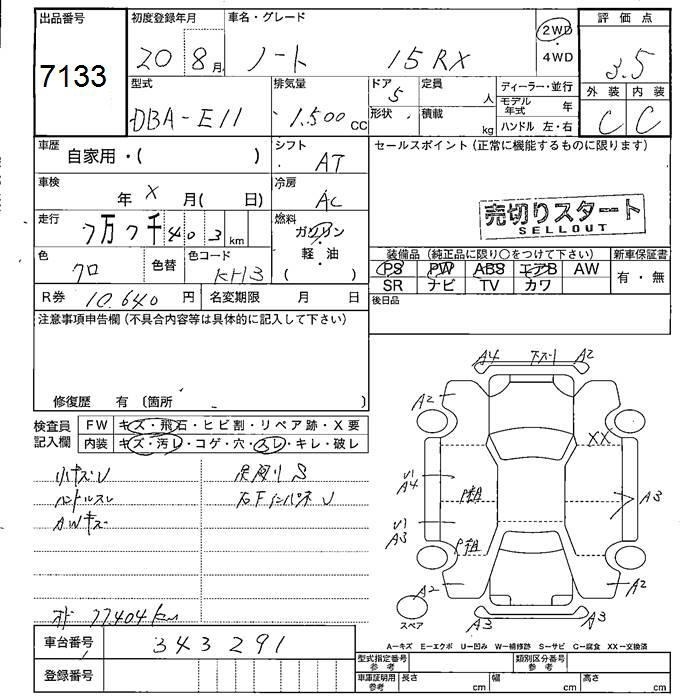 出品番号 初度登録年月 車名・グレード 2WD・4WD 評価点
7133 20 8月 ノート 15RX 3.5
型式 排気量 ドア 定員 ディーラー・並行 外装 内装
DBA-E11 1.500cc 5 人 モデル年式 年 C C
形状 積載 kg ハンドル 左・右
車歴 自家用・( ) シフト AT セールスポイント(正常に機能するものに限ります)
車検 年 X 月( 日) 冷房 AC
売切りスタート
SELLOUT
走行 7万7千403km 燃料 ガソリン・軽・油( )
色 クロ 色替 色コード KH3
装備品(純正品に限り○をつけて下さい) 新車保証書
PS PW ABS エアB AW 有・無
SR ナビ TV カワ
R券 10.640円 名変期限 月 日 後日品
注意事項申告欄(不具合内容等は具体的に記入して下さい)
修復歴 有(箇所 )
検査員記入欄 FW キズ・飛石・ヒビ割・リペア跡・X要
内装 キズ・汚レ・コゲ・穴・スレ・キレ・破レ
小キズU
ハンドルスレ
AWキズ
右下インパネU
オド 77.404km
A4 下ズリ A2
A2
XX
A4
A3
A3
A2 A2
A3 A3
スペア
A-キズ E-エクボ U-凹み W-補修跡 S-サビ C-腐食 XX-交換済
車台番号 343291
登録番号
型式指定番号参考 類別区分番号参考
車庫証明用参考 長さ cm 幅 cm 高さ cm